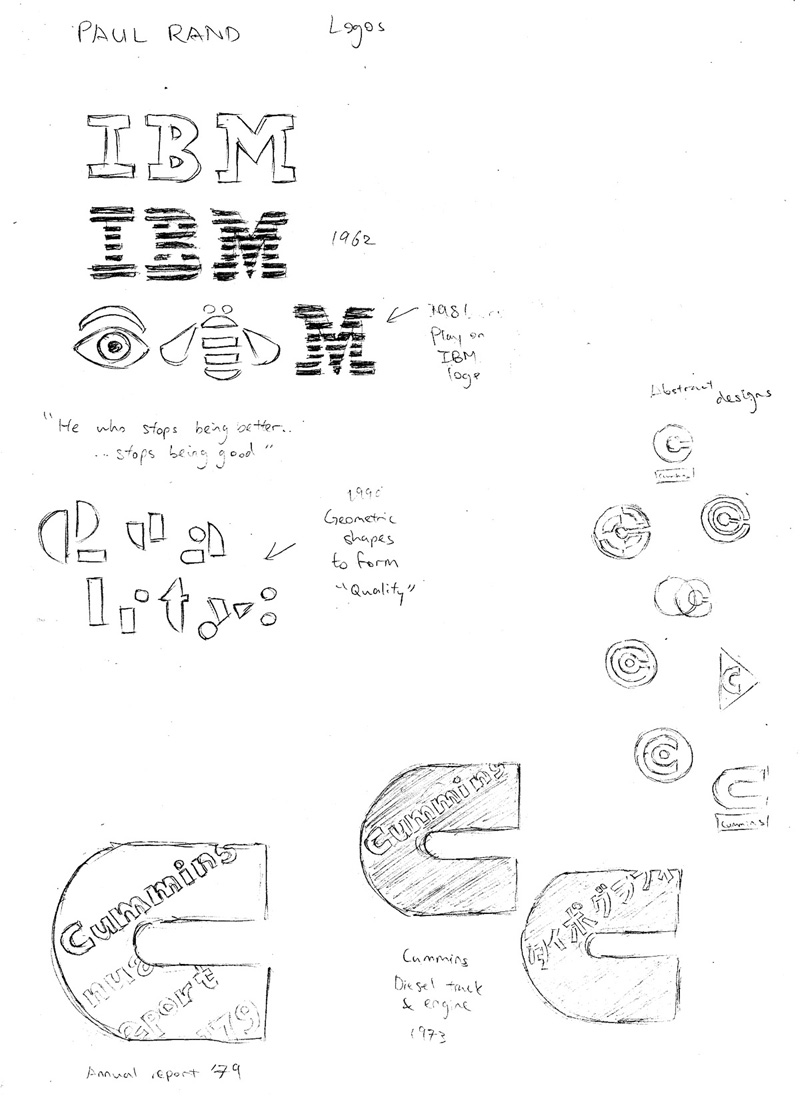 PAUL RAND
Logos
IBM
IBM
1962
M
1981
Play on
IBM
logo
"He who stops being better..
...stops being good"
Abstract designs
Cummins
1990
Geometric
shapes
to form
"Quality"
Qua
lity:
C
C
Cummins
Cummins
nua
eport
'79
Annual report '79
Cummins
Cummins
Diesel truck
& engine
1973